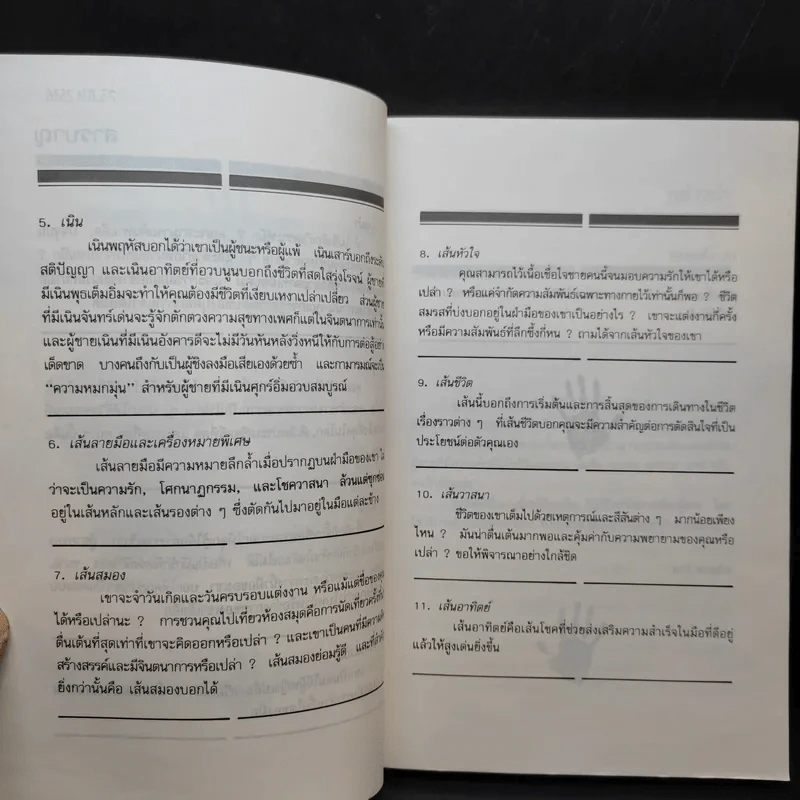 5. เนิน
เนินพฤหัสบอกได้ว่าเขาเป็นผู้ชนะหรือผู้แพ้ เนินเสาร์บอกถึงระดับ
สติปัญญา และเนินอาทิตย์ที่อวบนูนบอกถึงชีวิตที่สดใสรุ่งโรจน์ ผู้ชายที่
มีเนินพุธเต็มอิ่มจะทำให้คุณต้องมีชีวิตที่เงียบเหงาเปล่าเปลี่ยว ส่วนผู้ชาย
ที่มีเนินจันทร์เด่นจะรู้จักตักตวงความสุขทางเพศก็แต่ในจินตนาการเท่านั้น
และผู้ชายเนินที่มีเนินอังคารดีจะไม่มีวันหันหลังวิ่งหนีให้กับการต่อสู้อย่าง
เด็ดขาด บางคนถึงกับเป็นผู้ชิงลงมือเสียเองด้วยซ้ำ และกามารมณ์จะเป็น
“ความหมกมุ่น” สำหรับผู้ชายที่มีเนินศุกร์อิ่มอวบสมบูรณ์
6. เส้นลายมือและเครื่องหมายพิเศษ
เส้นลายมือมีความหมายลึกล้ำเมื่อปรากฏบนฝ่ามือของเขา ไม่
ว่าจะเป็นความรัก, โศกนาฏกรรม, และโชควาสนา ล้วนแต่ซุกซ่อน
อยู่ในเส้นหลักและเส้นรองต่าง ๆ ซึ่งตัดกันไปมาอยู่ในมือแต่ละข้าง
7. เส้นสมอง
เขาจะจำวันเกิดและวันครบรอบแต่งงาน หรือแม้แต่ชื่อของคุณ
ได้หรือเปล่านะ ? การชวนคุณไปเที่ยวห้องสมุดคือการนัดเที่ยวครั้งที่
ตื่นเต้นที่สุดเท่าที่เขาจะคิดออกหรือเปล่า ? และเขาเป็นคนที่มีความคิด
สร้างสรรค์และมีจินตนาการหรือเปล่า ? เส้นสมองย่อมรู้ดี และที่สำคัญ
ยิ่งกว่านั้นคือ เส้นสมองบอกได้
8. เส้นหัวใจ
คุณสามารถไว้เนื้อเชื่อใจชายคนนี้จนมอบความรักให้เขาได้หรือ
เปล่า ? หรือแค่จำกัดความสัมพันธ์เฉพาะทางกายไว้เท่านั้นก็พอ ? ชีวิต
สมรสที่บ่งบอกอยู่ในฝ่ามือของเขาเป็นอย่างไร ? เขาจะแต่งงานกี่ครั้ง
หรือมีความสัมพันธ์ที่ลึกซึ้งกี่หน ? ถามได้จากเส้นหัวใจของเขา
9. เส้นชีวิต
เส้นนี้บอกถึงการเริ่มต้นและการสิ้นสุดของการเดินทางในชีวิต
เรื่องราวต่าง ๆ ที่เส้นชีวิตบอกคุณจะมีความสำคัญต่อการตัดสินใจที่เป็น
ประโยชน์ต่อตัวคุณเอง
10. เส้นวาสนา
ชีวิตของเขาเต็มไปด้วยเหตุการณ์และสีสันต่าง ๆ มากน้อยเพียง
ไหน ? มันน่าตื่นเต้นมากพอและคุ้มค่ากับความพยายามของคุณหรือ
เปล่า ? ขอให้พิจารณาอย่างใกล้ชิด
11. เส้นอาทิตย์
เส้นอาทิตย์คือเส้นโชคที่ช่วยส่งเสริมความสำเร็จในมือที่ดีอยู่
แล้วให้สูงเด่นยิ่งขึ้น